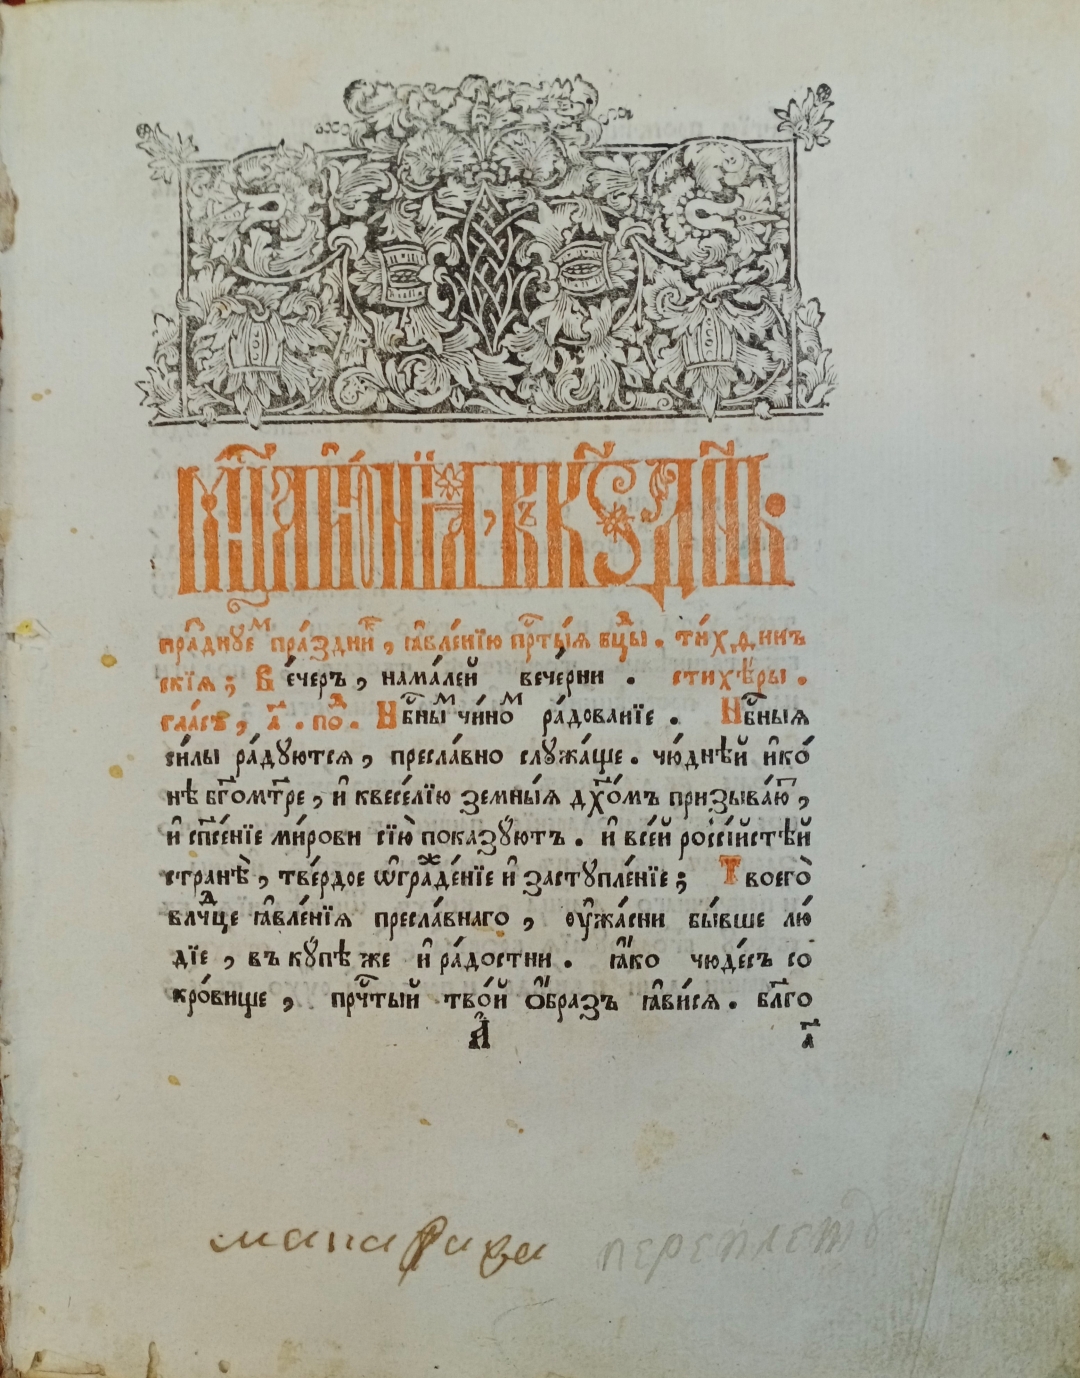 Мц҇а і҆ю́нїа, въ кѕ҃ дн҃ь.
пра́днуемъ пра́здникъ, ꙗ҆вле́нїю прⷭ҇ты́ѧ бцⷣы. ти́хфинъ
скїѧ; Ве́черъ, нама́лей вече́рни . стихѣ́ры .
гла́съ, д҃. поⷣ. Нбⷭ҇ныⷨ чи́ноⷨ ра́дованїе . Нбⷭ҇ныѧ
си́лы ра́дуютсѧ, пресла́вно служа́ще . чю́днѣй и҆ко́
нѣ бг҃омт҃ре, и҆ квесе́лїю земны́ѧ дх҃омъ призыва́ютъ,
и҆ сп҃се́нїе ми́рови сїю̀ показу́ютъ . и҆ все́й россі́йстѣй
странѣ̀, тве́рдое ѡ҆гражⷣе́нїе и҆ заступле́нїе; Твоегѡ̀
влⷣчце ꙗ҆вле́нїѧ пресла́внаго, оу҆жа́сни бы́вше лю́
дїе, въ ку́пѣ же и҆ ра́достни . ꙗ҆́ко чюде́съ со
кро́вище, прчⷭ҇тый тво́й ѻ҆́бразъ ꙗ҆ви́сѧ . бл҃го
А҃ д҃
переплетъ